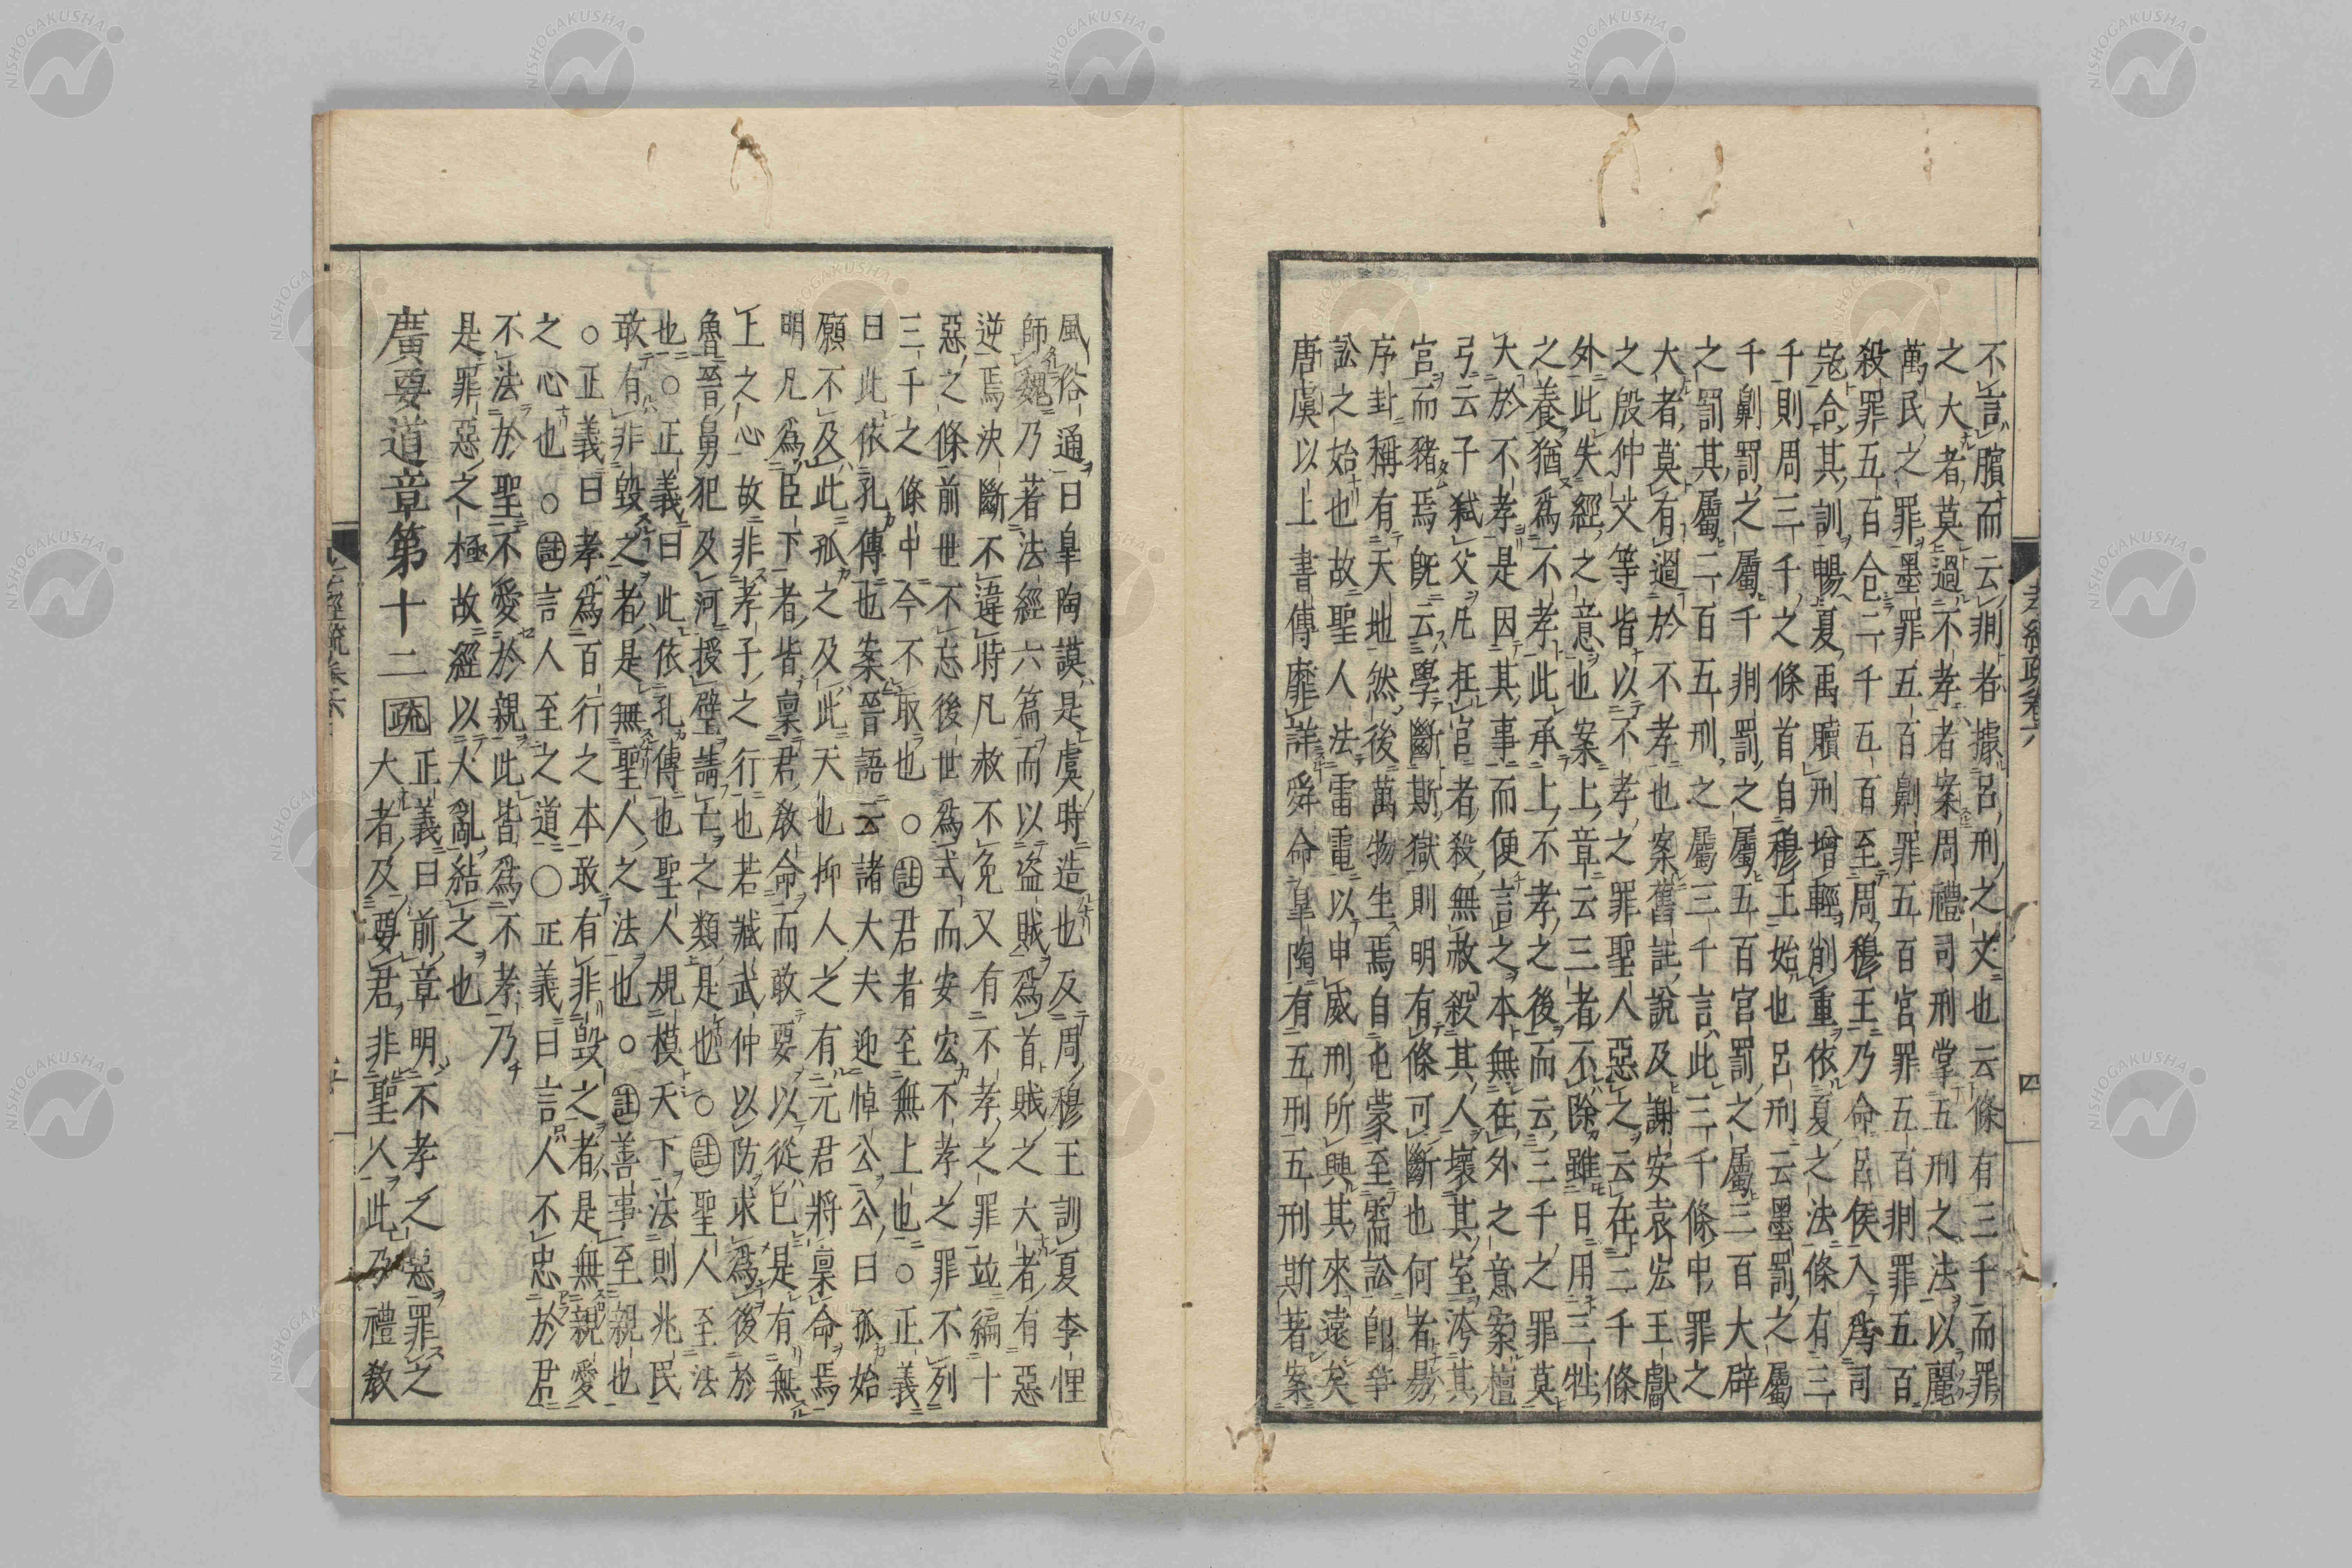 孝經疏卷六
四
不言臏而云剕者據呂刑之文也云條有三千而罪
之大者莫過不孝者案周禮司刑掌五刑之法以麗
萬民之罪墨罪五百劓罪五百宮罪五百剕罪五百
殺罪五百合二千五百至周穆王乃命呂侯入爲司
寇令其訓暢夏禹贖刑增輕削重依夏之法條有三
千則周三千之條首自穆王始也呂刑云墨罰之屬
千劓罰之屬千剕罰之屬五百宮罰之屬三百大辟
之罰其屬二百五刑之屬三千言此三千條中罪之
大者莫有過於不孝也案舊註說及謝安袁宏王獻
之殷仲文等皆以不孝之罪聖人惡之云在三千條
外此失經之意也案上章云三者不除雖日用三牲
之養猶爲不孝此承上不孝之後而云三千之罪莫
大於不孝是因其事而便言之本無在外之意案檀
弓云子弑父凡在宮者殺無赦殺其人壞其室洿其
宮而豬焉旣云學斷斯獄則明有條可斷也何者易
序卦稱有天地然後萬物生焉自屯蒙至需訟卽爭
訟之始也故聖人法雷電以申威刑所興其來遠矣
唐虞以上書傳靡詳舜命皐陶有五刑五刑斯著案
風俗通曰皐陶謨是虞時造也及周穆王訓夏李悝
師魏乃著法經六篇而以盜賊爲首賊之大者有惡
逆焉決斷不違時凡赦不免又有不孝之罪並編十
惡之條前世不忘後世爲式而安宏不孝之罪不列
三千之條中今不取也○註君者至無上也○正義
曰此依孔傳也案晉語云諸大夫迎悼公公曰孤始
願不及此孤之及此天也抑人之有元君將稟命焉
明凡爲臣下者皆稟君教命而敢要以從已是有無
上之心故非孝子之行也若臧武仲以防求爲後於
魯晉舅犯及河授璧請亡之類是也○註聖人至法
也○正義曰此依孔傳也聖人規模天下法則兆民
敢有非毀之者是無聖人之法也○註善事至親也
○正義曰孝爲百行之本敢有非毀之者是無親愛
之心也○註言人至之道○正義曰言人不忠於君
不法於聖不愛於親此皆爲不孝乃
是罪惡之極故經以大亂結之也
廣要道章第十二 疏 正義曰前章明不孝之惡罪之
大者及要君非聖人此乃禮教